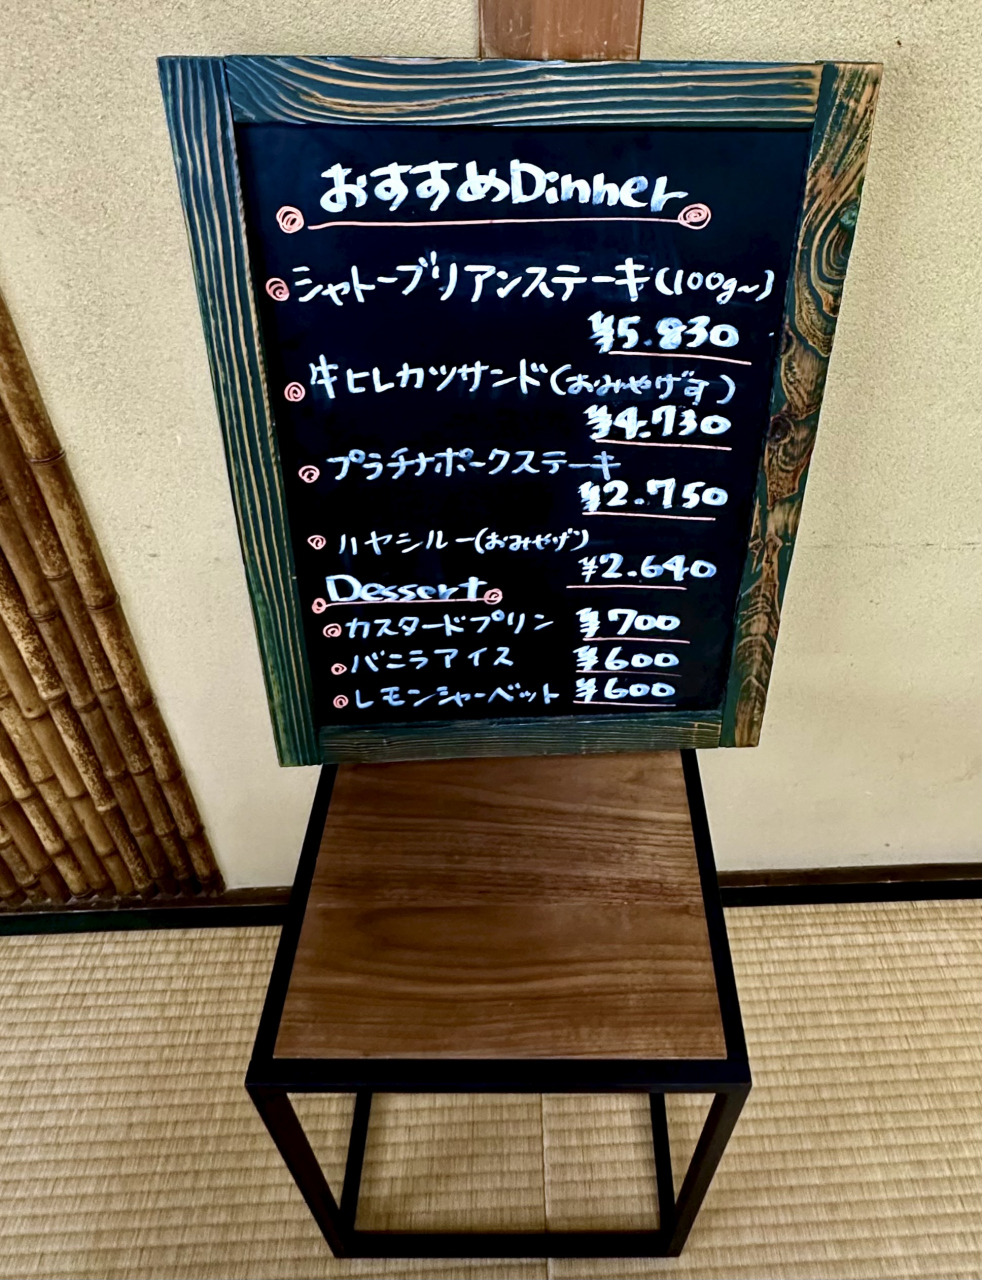 おすすめDinner
シャトーブリアンステーキ(100g~)
¥5.830
牛ヒレカツサンド(おみやげす)
¥4.730
プラチナポークステーキ
¥2.750
ハヤシルー(おみやげ)
¥2.640
Dessert
カスタードプリン ¥700
バニラアイス ¥600
レモンシャーベット ¥600